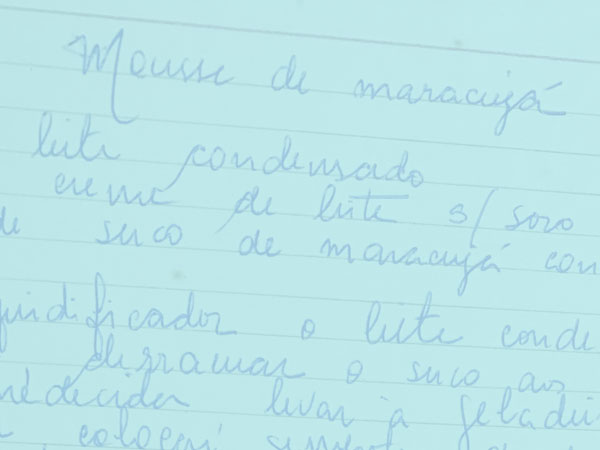 Mousse de maracujá
leite condensado
creme de leite s/ soro
de suco de maracujá con
quidificador o leite conde
derramar o suco aos
levar à geladei